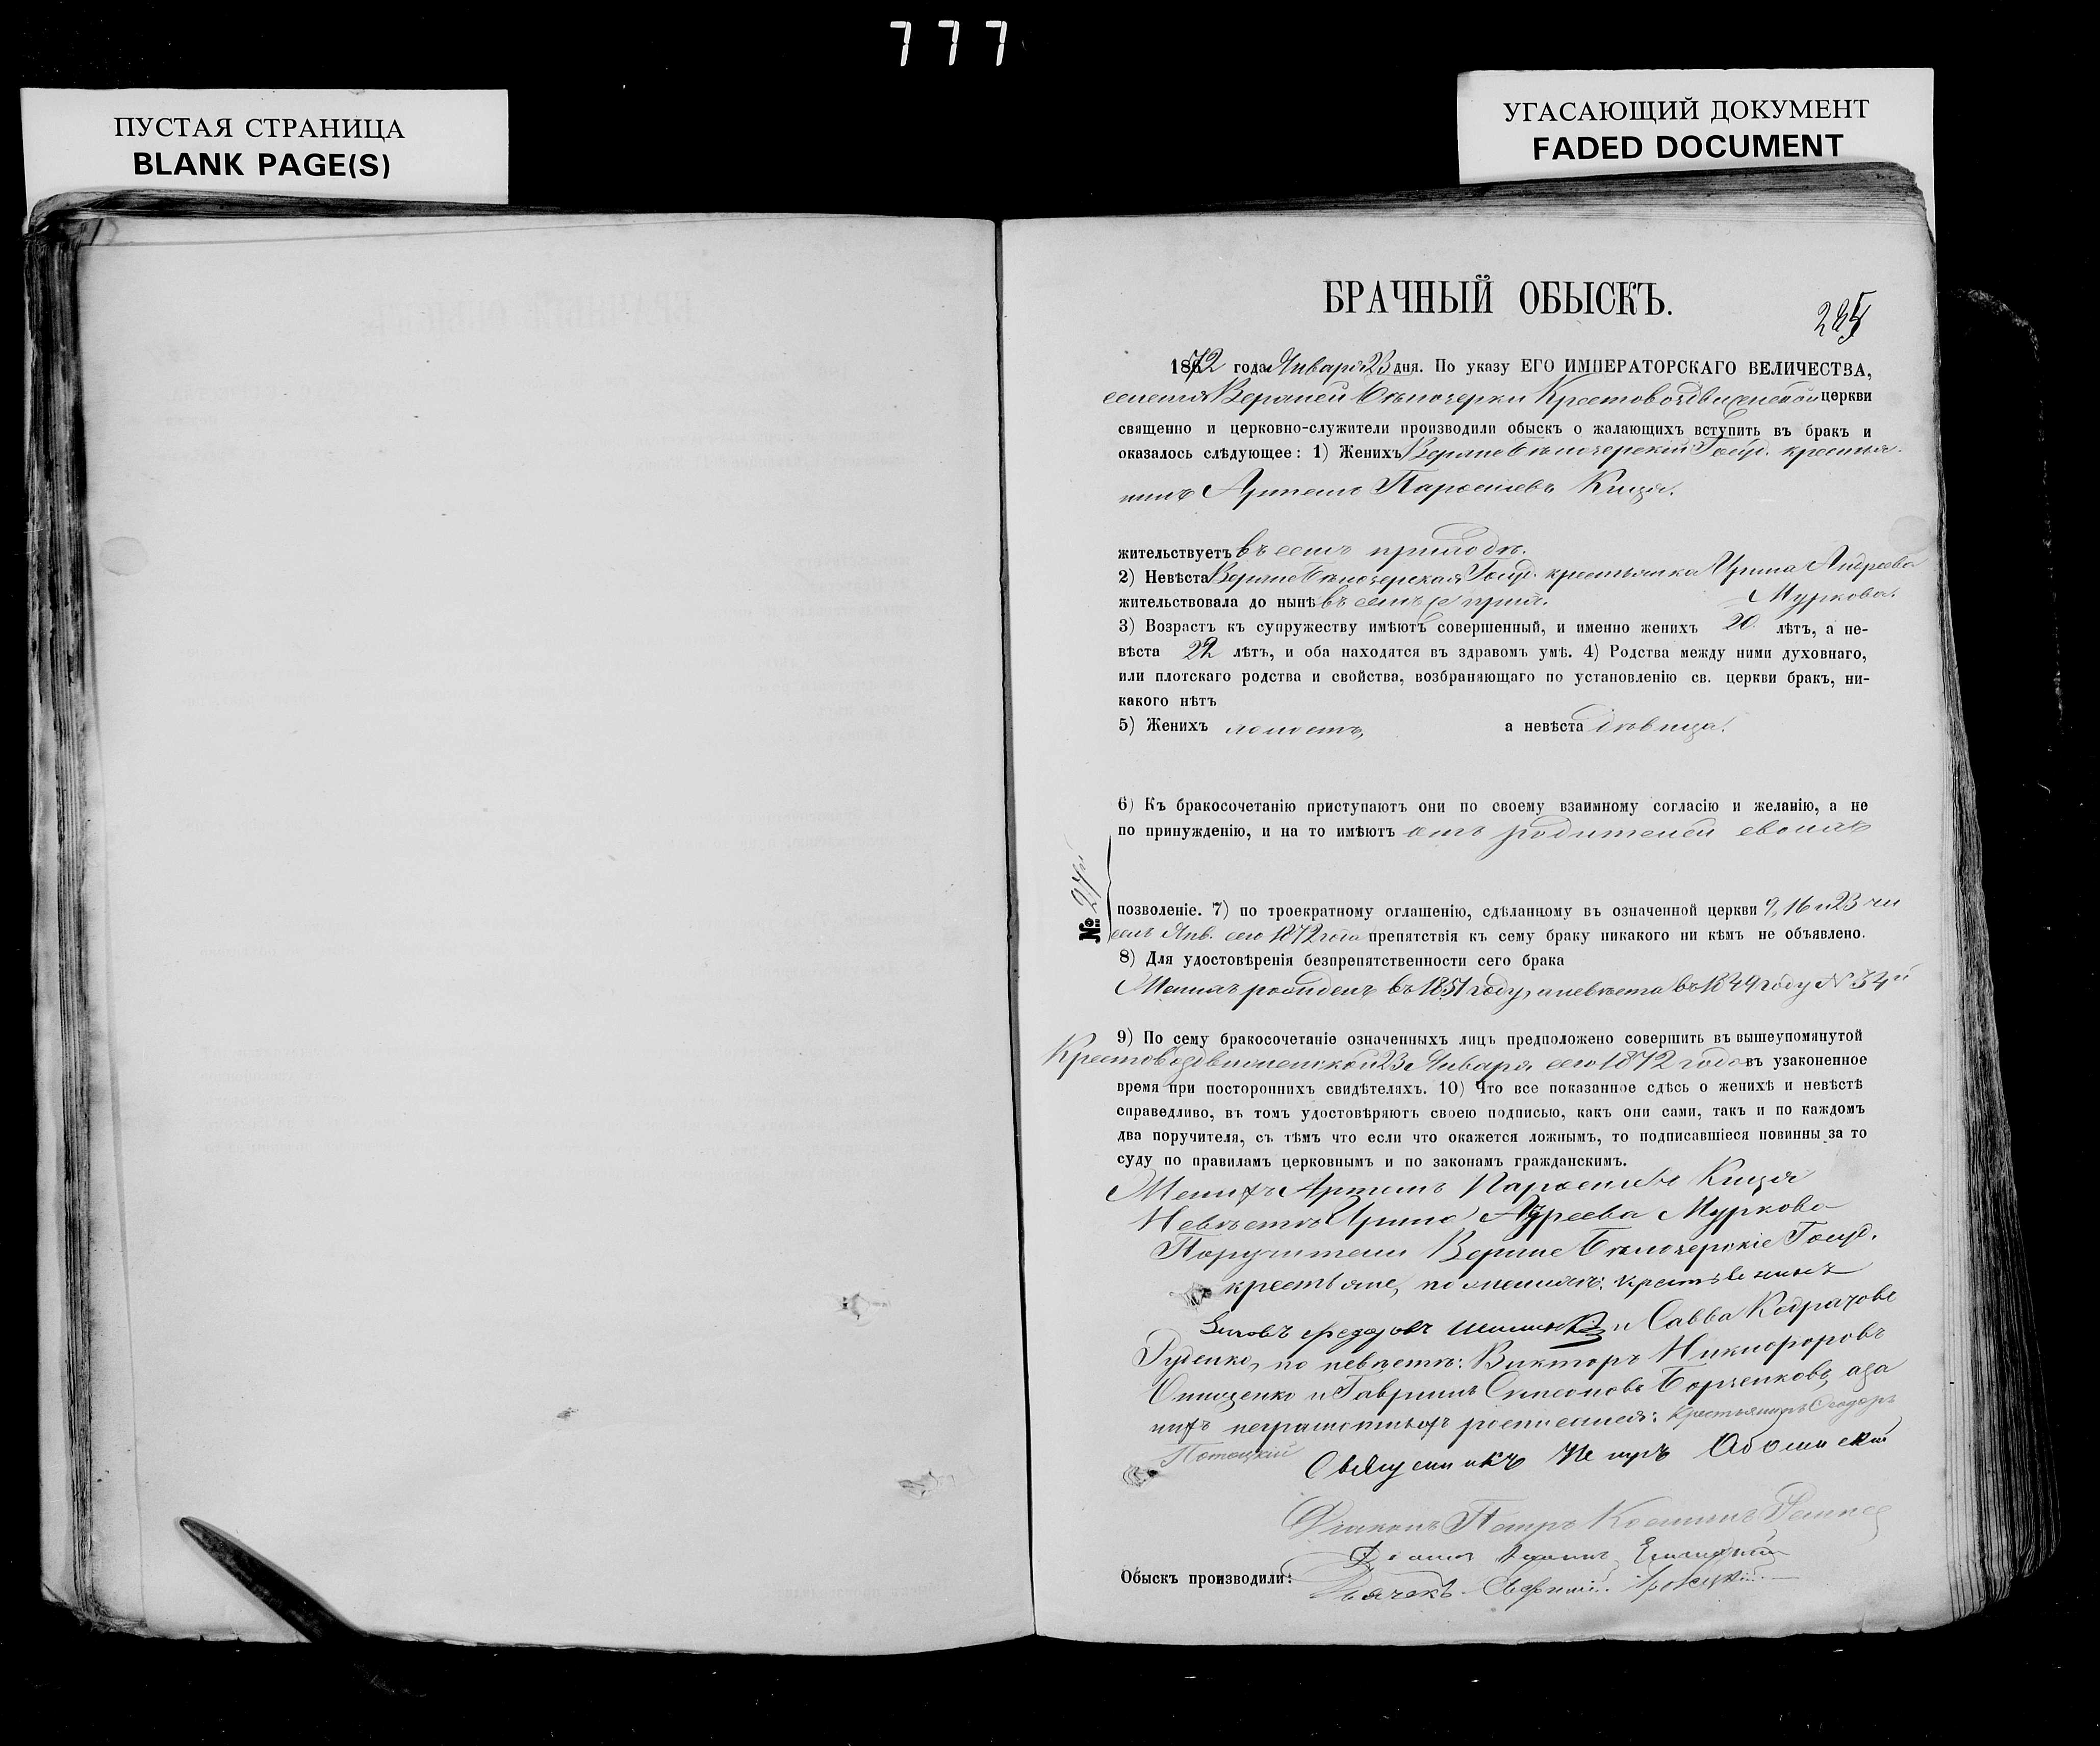 777
ПУСТАЯ СТРАНИЦА
BLANK PAGE(S)
УГАСАЮЩИЙ ДОКУМЕНТ
FADED DOCUMENT
БРАЧНЫЙ ОБЫСКЪ.
285
1872 года Января 23 дня. По указу ЕГО ИМПЕРАТОРСКАГО ВЕЛИЧЕСТВА,
селенія Верхней Бѣлозерки Крестовоздвиженской церкви
священно и церковно-служители производили обыскъ о жалающихъ вступить въ бракъ и
оказалось слѣдующее: 1) Женихъ Верхнебѣлозерскій Госуд. крестья-
нинъ Артемъ Парѳеніевъ Кица.
жительствуетъ въ семъ приходѣ.
2) Невѣста Верхнебѣлозерская Госуд. крестьянка Ирина Андреева
Муркова.
жительствовала до нынѣ въ семъ же прих.
3) Возрастъ къ супружеству имѣютъ совершенный, и именно женихъ 20. лѣтъ, а не-
вѣста 22 лѣтъ, и оба находятся въ здравомъ умѣ. 4) Родства между ними духовнаго,
или плотскаго родства и свойства, возбраняющаго по установленію св. церкви бракъ, ни-
какого нѣтъ
5) Женихъ холостъ, а невѣста дѣвица.
6) Къ бракосочетанію приступаютъ они по своему взаимному согласію и желанію, а не
по принужденію, и на то имѣютъ отъ родителей своихъ
№ 27й
позволеніе. 7) по троекратному оглашенію, сдѣланному въ означенной церкви 9, 16 и 23 чи
селъ Янв. сего 1872 года препятствія къ сему браку никакого ни кѣмъ не объявлено.
8) Для удостовѣренія безпрепятственности сего брака
Женихъ рожденъ въ 1851 году, а невѣста въ 1849 году N 34й
9) По сему бракосочетаніе означенныхъ лицъ предположено совершить въ вышеупомянутой
Крестовоздвиженской 23 Января сего 1872 года въ узаконенное
время при постороннихъ свидѣтеляхъ. 10) Что все показанное сдѣсь о женихѣ и невѣстѣ
справедливо, въ томъ удостовѣряютъ своею подписью, какъ они сами, такъ и по каждомъ
два поручителя, съ тѣмъ что если что окажется ложнымъ, то подписавшіеся повинны за то
суду по правиламъ церковнымъ и по законамъ гражданскимъ.
Женихъ Артемъ Парѳеніевъ Кица
Невѣста Ирина Адреева Муркова
Поручители Верхнебѣлозерскіе Госуд.
крестьяне, по женихѣ: крестьенинъ
федоровъ и Савва Кодратовъ
Руденко, по невѣстѣ: Викторъ Никифоровъ
Онищенко и Гавриилъ Симеоновъ Борченковъ, а за
нихъ неграмотныхъ росписался: Крестьянинъ Ѳеодоръ
Потоцкій
Священикъ Петръ
Діаконъ Петръ
Обыскъ производили:
Дьячекъ